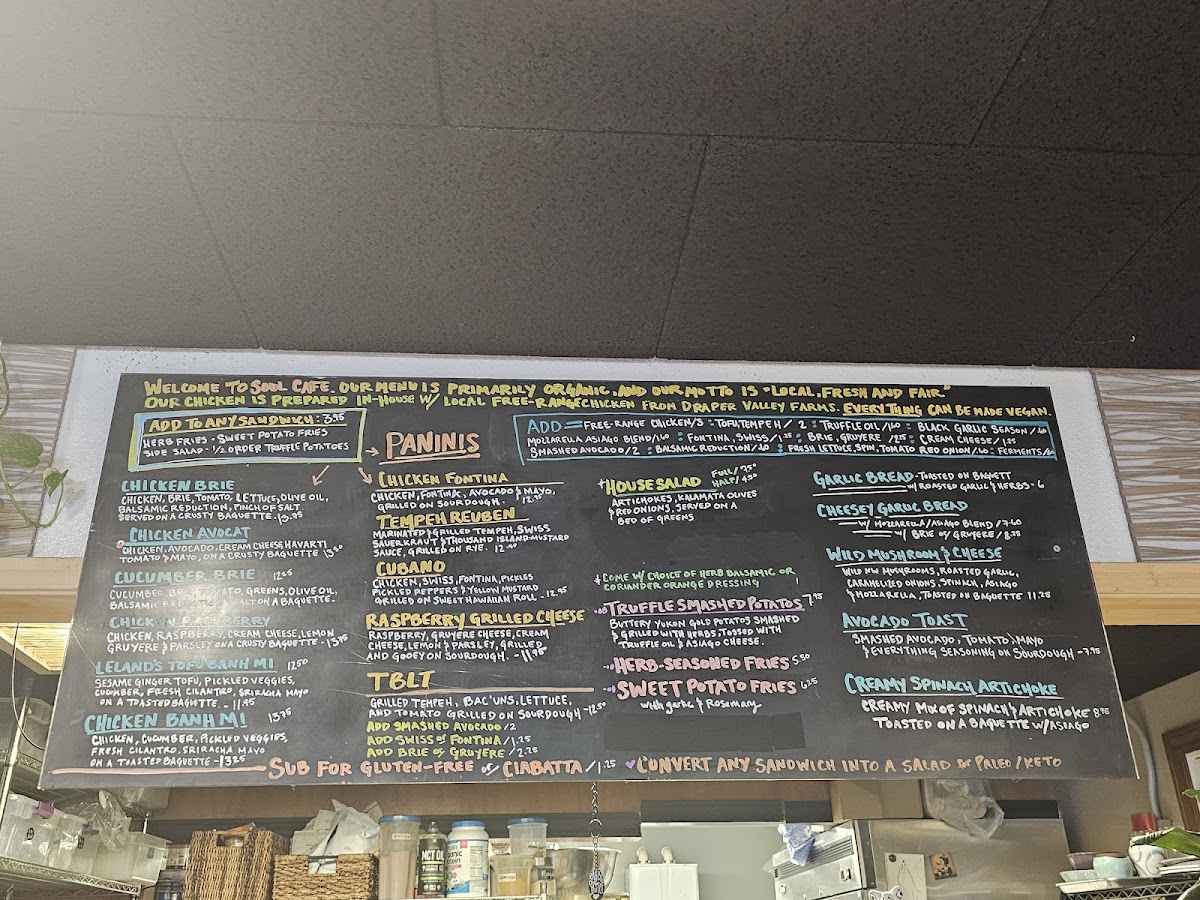 WELCOME TO SOUL CAFE. OUR MENU IS PRIMARILY ORGANIC, AND OUR MOTTO IS "LOCAL, FRESH AND FAIR"
OUR CHICKEN IS PREPARED IN-HOUSE W/ LOCAL FREE-RANGE CHICKEN FROM DRAPER VALLEY FARMS. EVERYTHING CAN BE MADE VEGAN.
ADD TO ANY SANDWICH: 3.95
HERB FRIES · SWEET POTATO FRIES
SIDE SALAD · 1/2 ORDER TRUFFLE POTATOES
ADD = FREE-RANGE CHICKEN/3 : TOFU, TEMPEH / 2 : TRUFFLE OIL/1.60 : BLACK GARLIC SEASON/.60
MOZZARELLA ASIAGO BLEND/1.60 : FONTINA, SWISS/1.25 : BRIE, GRUYERE /2.25 : CREAM CHEESE/1.25
SMASHED AVOCADO/2 : BALSAMIC REDUCTION/.60 : FRESH LETTUCE, SPIN, TOMATO RED ONION/.60 : FERMENTS/
CHICKEN BRIE
CHICKEN, BRIE, TOMATO, LETTUCE, OLIVE OIL,
BALSAMIC REDUCTION, PINCH OF SALT
SERVED ON A CRUSTY BAGUETTE. 13.95
CHICKEN AVOCAT
CHICKEN, AVOCADO, CREAM CHEESE HAVARTI
TOMATO & MAYO, ON A CRUSTY BAGUETTE 13.50
CUCUMBER BRIE 12.25
CUCUMBER, BRIE, TOMATO, GREENS, OLIVE OIL,
BALSAMIC SALT ON A BAGUETTE.
CHICKEN RASPBERRY
CHICKEN, RASPBERRY, CREAM CHEESE, LEMON
GRUYERE & PARSLEY ON A CRUSTY BAGUETTE - 13.75
LELAND'S TOFU BANH MI 12.50
SESAME GINGER TOFU, PICKLED VEGGIES,
CUCUMBER, FRESH CILANTRO, SRIRACHA MAYO
ON A TOASTED BAGUETTE - 11.95
CHICKEN BANH MI 13.75
CHICKEN, CUCUMBER, PICKLED VEGGIES,
FRESH CILANTRO, SRIRACHA MAYO
ON A TOASTED BAGUETTE - 13.25
PANINIS
CHICKEN FONTINA
CHICKEN, FONTINA, AVOCADO & MAYO,
GRILLED ON SOURDOUGH.
TEMPEH REUBEN
MARINATED & GRILLED TEMPEH, SWISS
SAUERKRAUT & THOUSAND ISLAND-MUSTARD
SAUCE, GRILLED ON RYE.
CUBANO
CHICKEN, SWISS, FONTINA, PICKLES
PICKLED PEPPERS & YELLOW MUSTARD
GRILLED ON SWEET HAWAIIAN ROLL - 12.95
RASPBERRY GRILLED CHEESE
RASPBERRY, GRUYERE CHEESE, CREAM
CHEESE, LEMON & PARSLEY, GRILLED
AND GOOEY ON SOURDOUGH. - 11.95
TBLT
GRILLED TEMPEH, BAC'UNS, LETTUCE,
AND TOMATO GRILLED ON SOURDOUGH - 12.50
ADD SMASHED AVOCADO / 2
ADD SWISS or FONTINA / 1.25
ADD BRIE or GRUYERE / 2.25
HOUSE SALAD FULL/ 7.50 HALF/ 4.50
ARTICHOKES, KALAMATA OLIVES
& RED ONIONS, SERVED ON A
BED OF GREENS
COME W/ CHOICE OF HERB BALSAMIC OR
CORIANDER ORANGE DRESSING
TRUFFLE SMASHED POTATOS 7.95
BUTTERY YUKON GOLD POTATOS SMASHED
& GRILLED WITH HERBS, TOSSED WITH
TRUFFLE OIL & ASIAGO CHEESE.
HERB-SEASONED FRIES 5.50
SWEET POTATO FRIES 6.25
with garlic & Rosemary
GARLIC BREAD - TOASTED ON BAGUETT
W/ ROASTED GARLIC & HERBS - 6
CHEESEY GARLIC BREAD
W/ MOZZARELLA/ASIAGO BLEND /7.60
W/ BRIE OF GRUYERE / 8.25
WILD MUSHROOM & CHEESE
WILD NW MUSHROOMS, ROASTED GARLIC,
CARAMELIZED ONIONS, SPINACH, ASIAGO
& MOZZARELLA, TOASTED ON BAGUETTE 11.25
AVOCADO TOAST
SMASHED AVOCADO, TOMATO, MAYO
& EVERYTHING SEASONING ON SOURDOUGH - 7.95
CREAMY SPINACH ARTICHOKE
CREAMY MIX OF SPINACH & ARTICHOKE 8.95
TOASTED ON A BAGUETTE W/ ASIAGO
SUB FOR GLUTEN-FREE or CIABATTA / 1.25
CONVERT ANY SANDWICH INTO A SALAD OR PALEO / KETO
MCT OIL
organic
protein